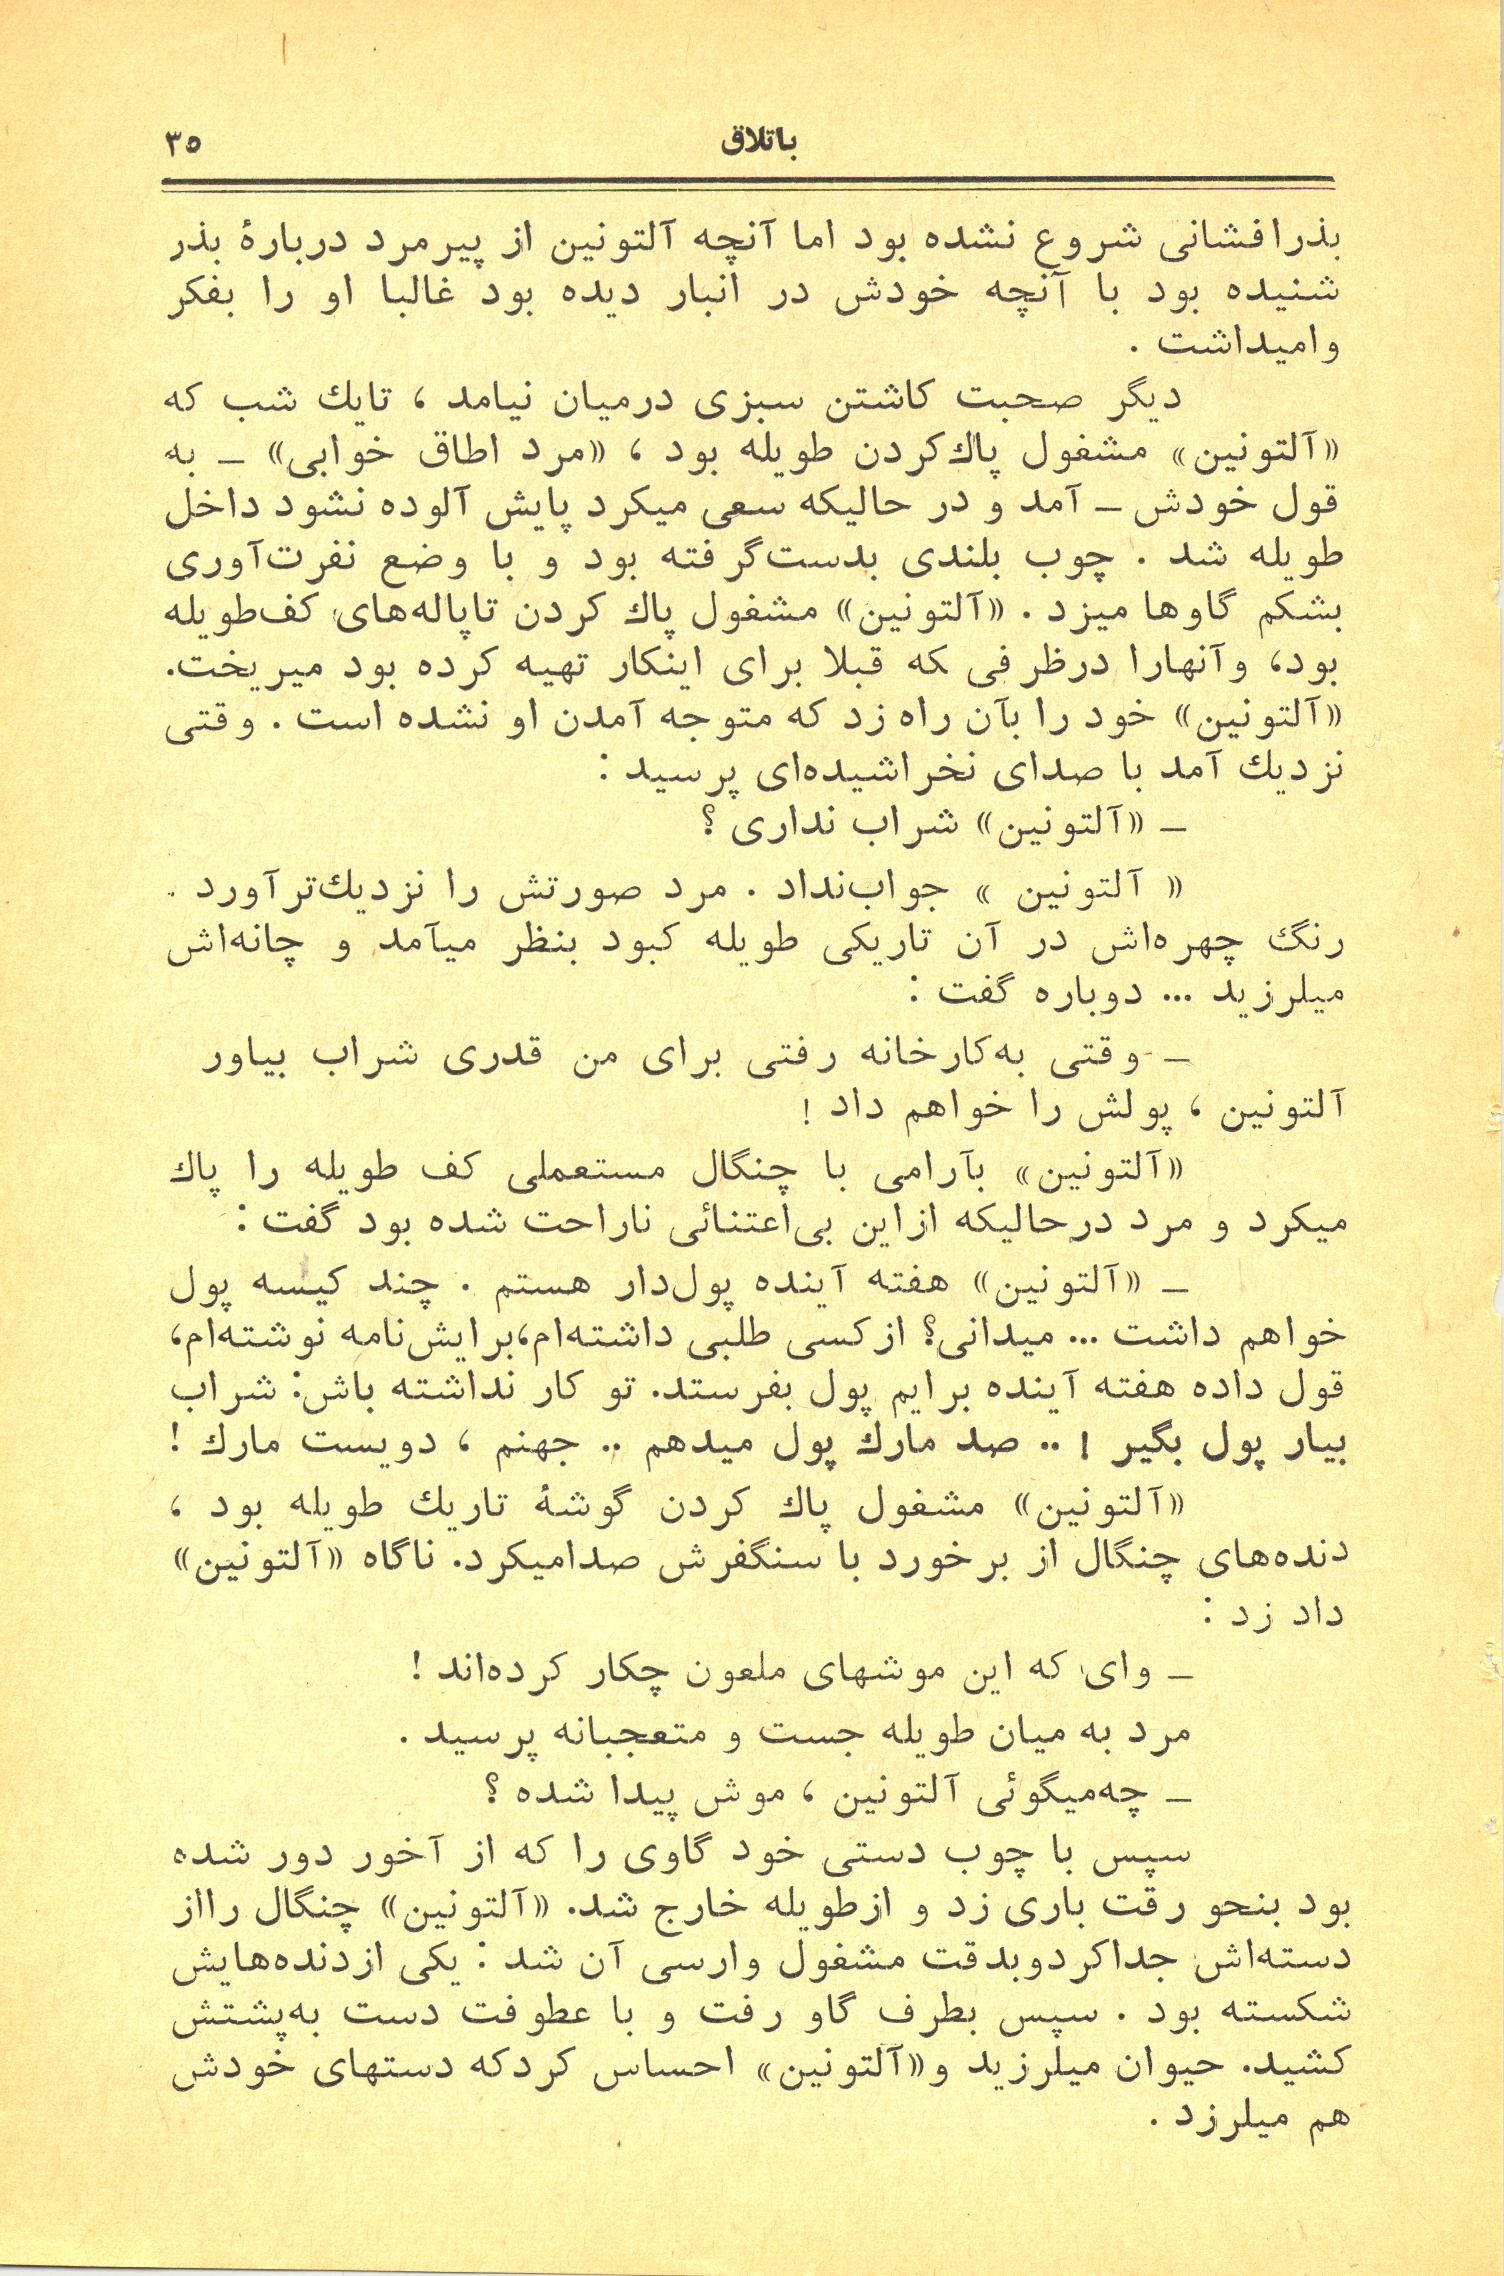 باتلاق ۳۵
بذرافشانی شروع نشده بود اما آنچه آلتونین از پیرمرد دربارهٔ بذر
شنیده بود با آنچه خودش در انبار دیده بود غالبا او را بفکر
وامیداشت .
دیگر صحبت کاشتن سبزی درمیان نیامد ، تایك شب که
«آلتونین» مشغول پاك‌کردن طویله بود ، «مرد اطاق خوابی» ـ به
قول خودش ـ آمد و در حالیکه سعی میکرد پایش آلوده نشود داخل
طویله شد . چوب بلندی بدست‌گرفته بود و با وضع نفرت‌آوری
بشکم گاوها میزد . «آلتونین» مشغول پاك کردن تاپاله‌های کف‌طویله
بود، وآنهارا درظرفی که قبلا برای اینکار تهیه کرده بود میریخت.
«آلتونین» خود را بآن راه زد که متوجه آمدن او نشده است . وقتی
نزدیك آمد با صدای نخراشیده‌ای پرسید :
ـ «آلتونین» شراب نداری ؟
« آلتونین » جواب‌نداد . مرد صورتش را نزدیك‌ترآورد .
رنگ چهره‌اش در آن تاریکی طویله کبود بنظر میآمد و چانه‌اش
میلرزید ... دوباره گفت :
ـ وقتی به‌کارخانه رفتی برای من قدری شراب بیاور
آلتونین ، پولش را خواهم داد !
«آلتونین» بآرامی با چنگال مستعملی کف طویله را پاك
میکرد و مرد درحالیکه ازاین بی‌اعتنائی ناراحت شده بود گفت :
ـ «آلتونین» هفته آینده پول‌دار هستم . چند کیسه پول
خواهم داشت ... میدانی؟ ازکسی طلبی داشته‌ام،برایش‌نامه نوشته‌ام،
قول داده هفته آینده برایم پول بفرستد. تو کار نداشته باش: شراب
بیار پول بگیر ! .. صد مارك پول میدهم .. جهنم ، دویست مارك !
«آلتونین» مشغول پاك کردن گوشهٔ تاریك طویله بود ،
دنده‌های چنگال از برخورد با سنگفرش صدامیکرد. ناگاه «آلتونین»
داد زد :
ـ وای که این موشهای ملعون چکار کرده‌اند !
مرد به میان طویله جست و متعجبانه پرسید .
ـ چه‌میگوئی آلتونین ، موش پیدا شده ؟
سپس با چوب دستی خود گاوی را که از آخور دور شده
بود بنحو رقت باری زد و ازطویله خارج شد. «آلتونین» چنگال رااز
دسته‌اش جداکردوبدقت مشغول وارسی آن شد : یکی ازدنده‌هایش
شکسته بود . سپس بطرف گاو رفت و با عطوفت دست به‌پشتش
کشید. حیوان میلرزید و«آلتونین» احساس کردکه دستهای خودش
هم میلرزد .